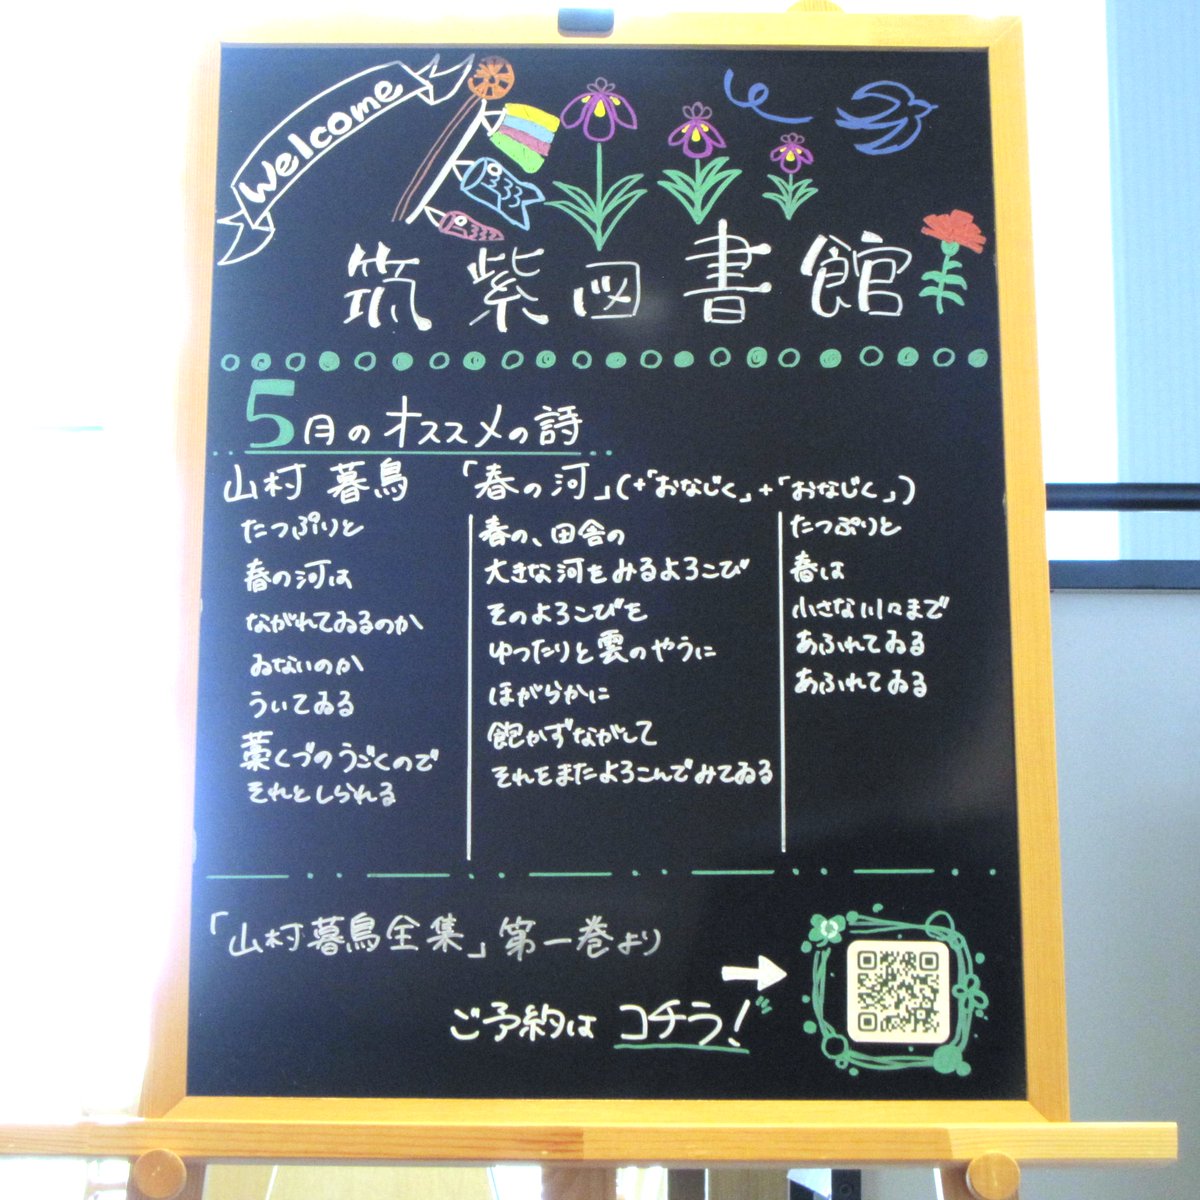 Welcome
筑紫図書館
5月のオススメの詩
山村 暮鳥 「春の河」(+「おなじく」+「おなじく」)
たつぷりと
春の河は
ながれてゐるのか
ゐないのか
ういてゐる
藁くづのうごくので
それとしられる
春の、田舎の
大きな河をみるよろこび
そのよろこびを
ゆつたりと雲のやうに
ほがらかに
飽かずながして
それをまたよろこんでみてゐる
たつぷりと
春は
小さな川々まで
あふれてゐる
あふれてゐる
「山村暮鳥全集」第一巻より
ご予約は コチラ!